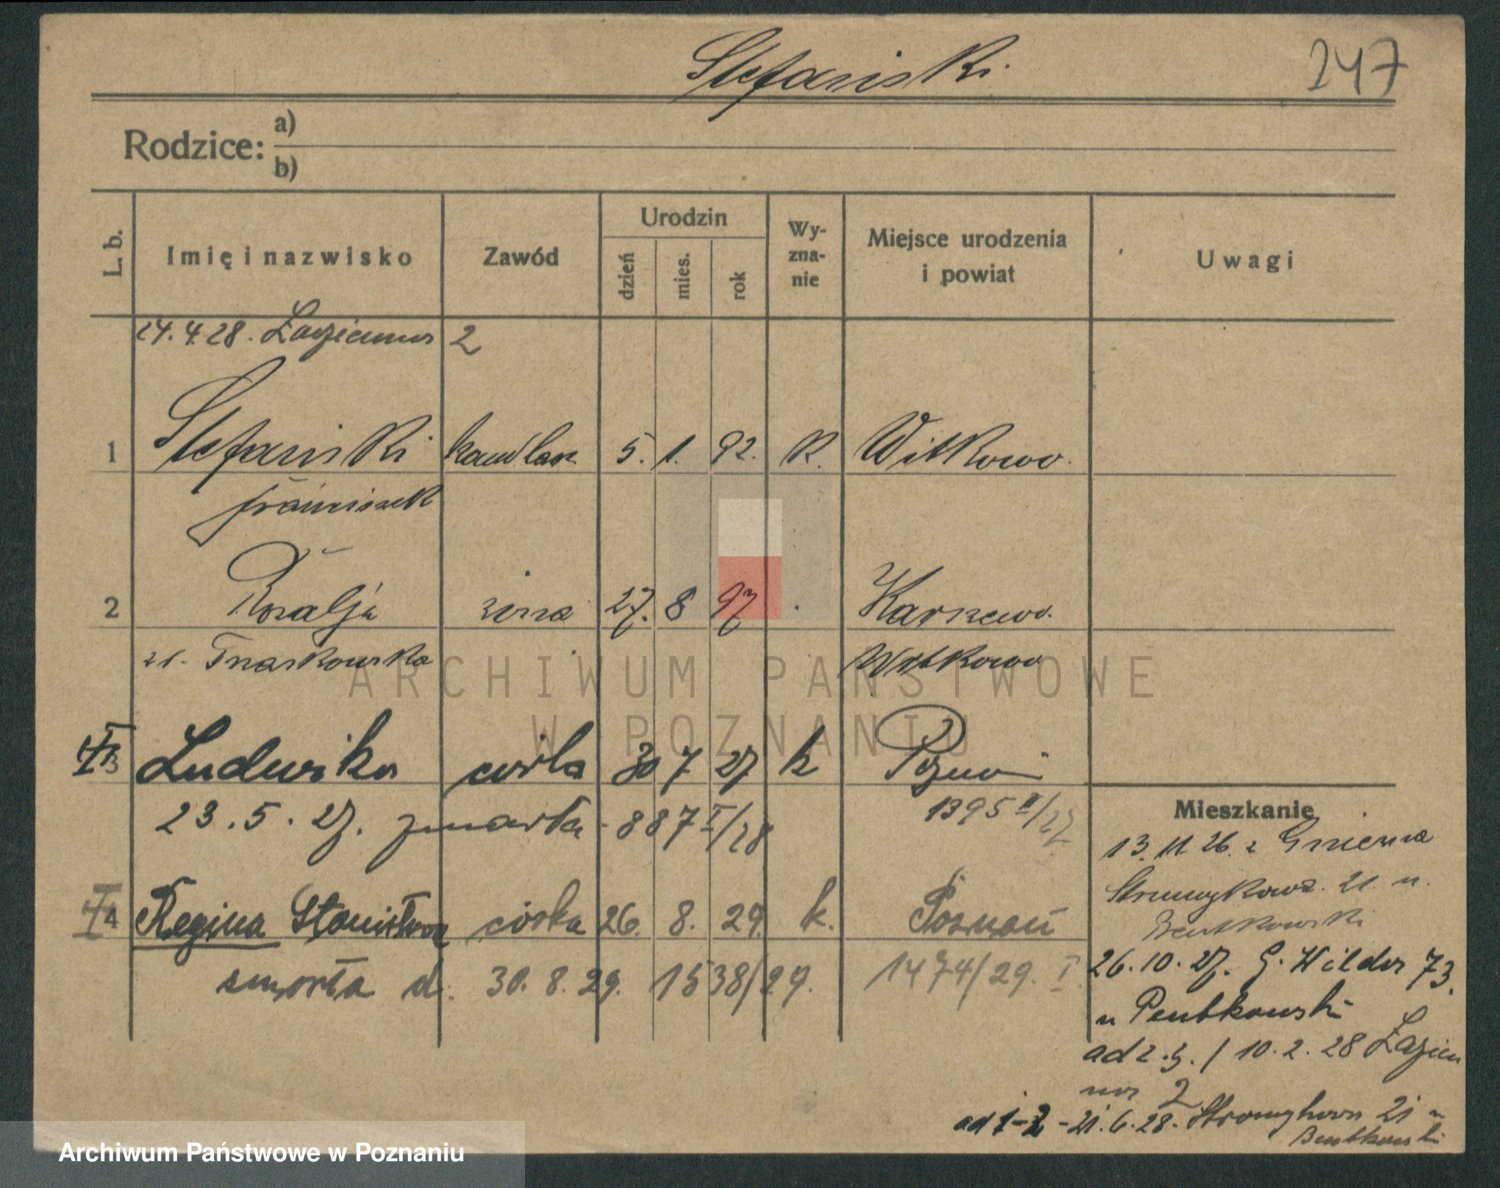 Stefański
247
Rodzice: a)
b)
L. b. Imię i nazwisko Zawód Urodzin dzień mies. rok Wy-zna-nie Miejsce urodzenia i powiat Uwagi
24.4.28. 2
1 Stefański 5. 1. 92. K. Witkowo.
Franciszek
2 Rozalja żona 27. 8 97
Witkowo
3 Ludwika córka 30 7 27 k Poznań
23.5.27. zmarła 887 I/28 1395 II/27
Mieszkanie
13.11.26. z Gniezna
21.
4 Regina Stanisława córka 26. 8. 29. k. Poznań
zmarła d. 30.8.29. 1538/29. 1474/29. I
26.10.27. G. Wilda 73.
u
ad 2.3. / 10.2.28
2
ad 1-2 - 21.6.28. 21
ARCHIWUM PAŃSTWOWE
W POZNANIU
Archiwum Państwowe w Poznaniu